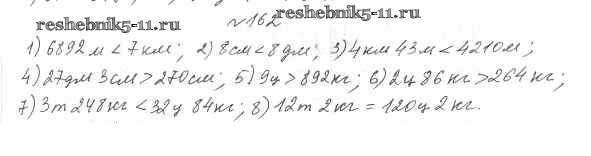 reshebnik5-11.ru
№162
reshebnik5-11.ru
1) 6892 м < 7 км; 2) 8 см < 8 дм; 3) 4 км 43 м < 4210 м;
4) 27 дм 3 см > 270 см; 5) 9 ц > 892 кг; 6) 2 ц 86 кг > 264 кг;
7) 3 т 248 кг < 32 ц 84 кг; 8) 12 т 2 кг = 120 ц 2 кг.